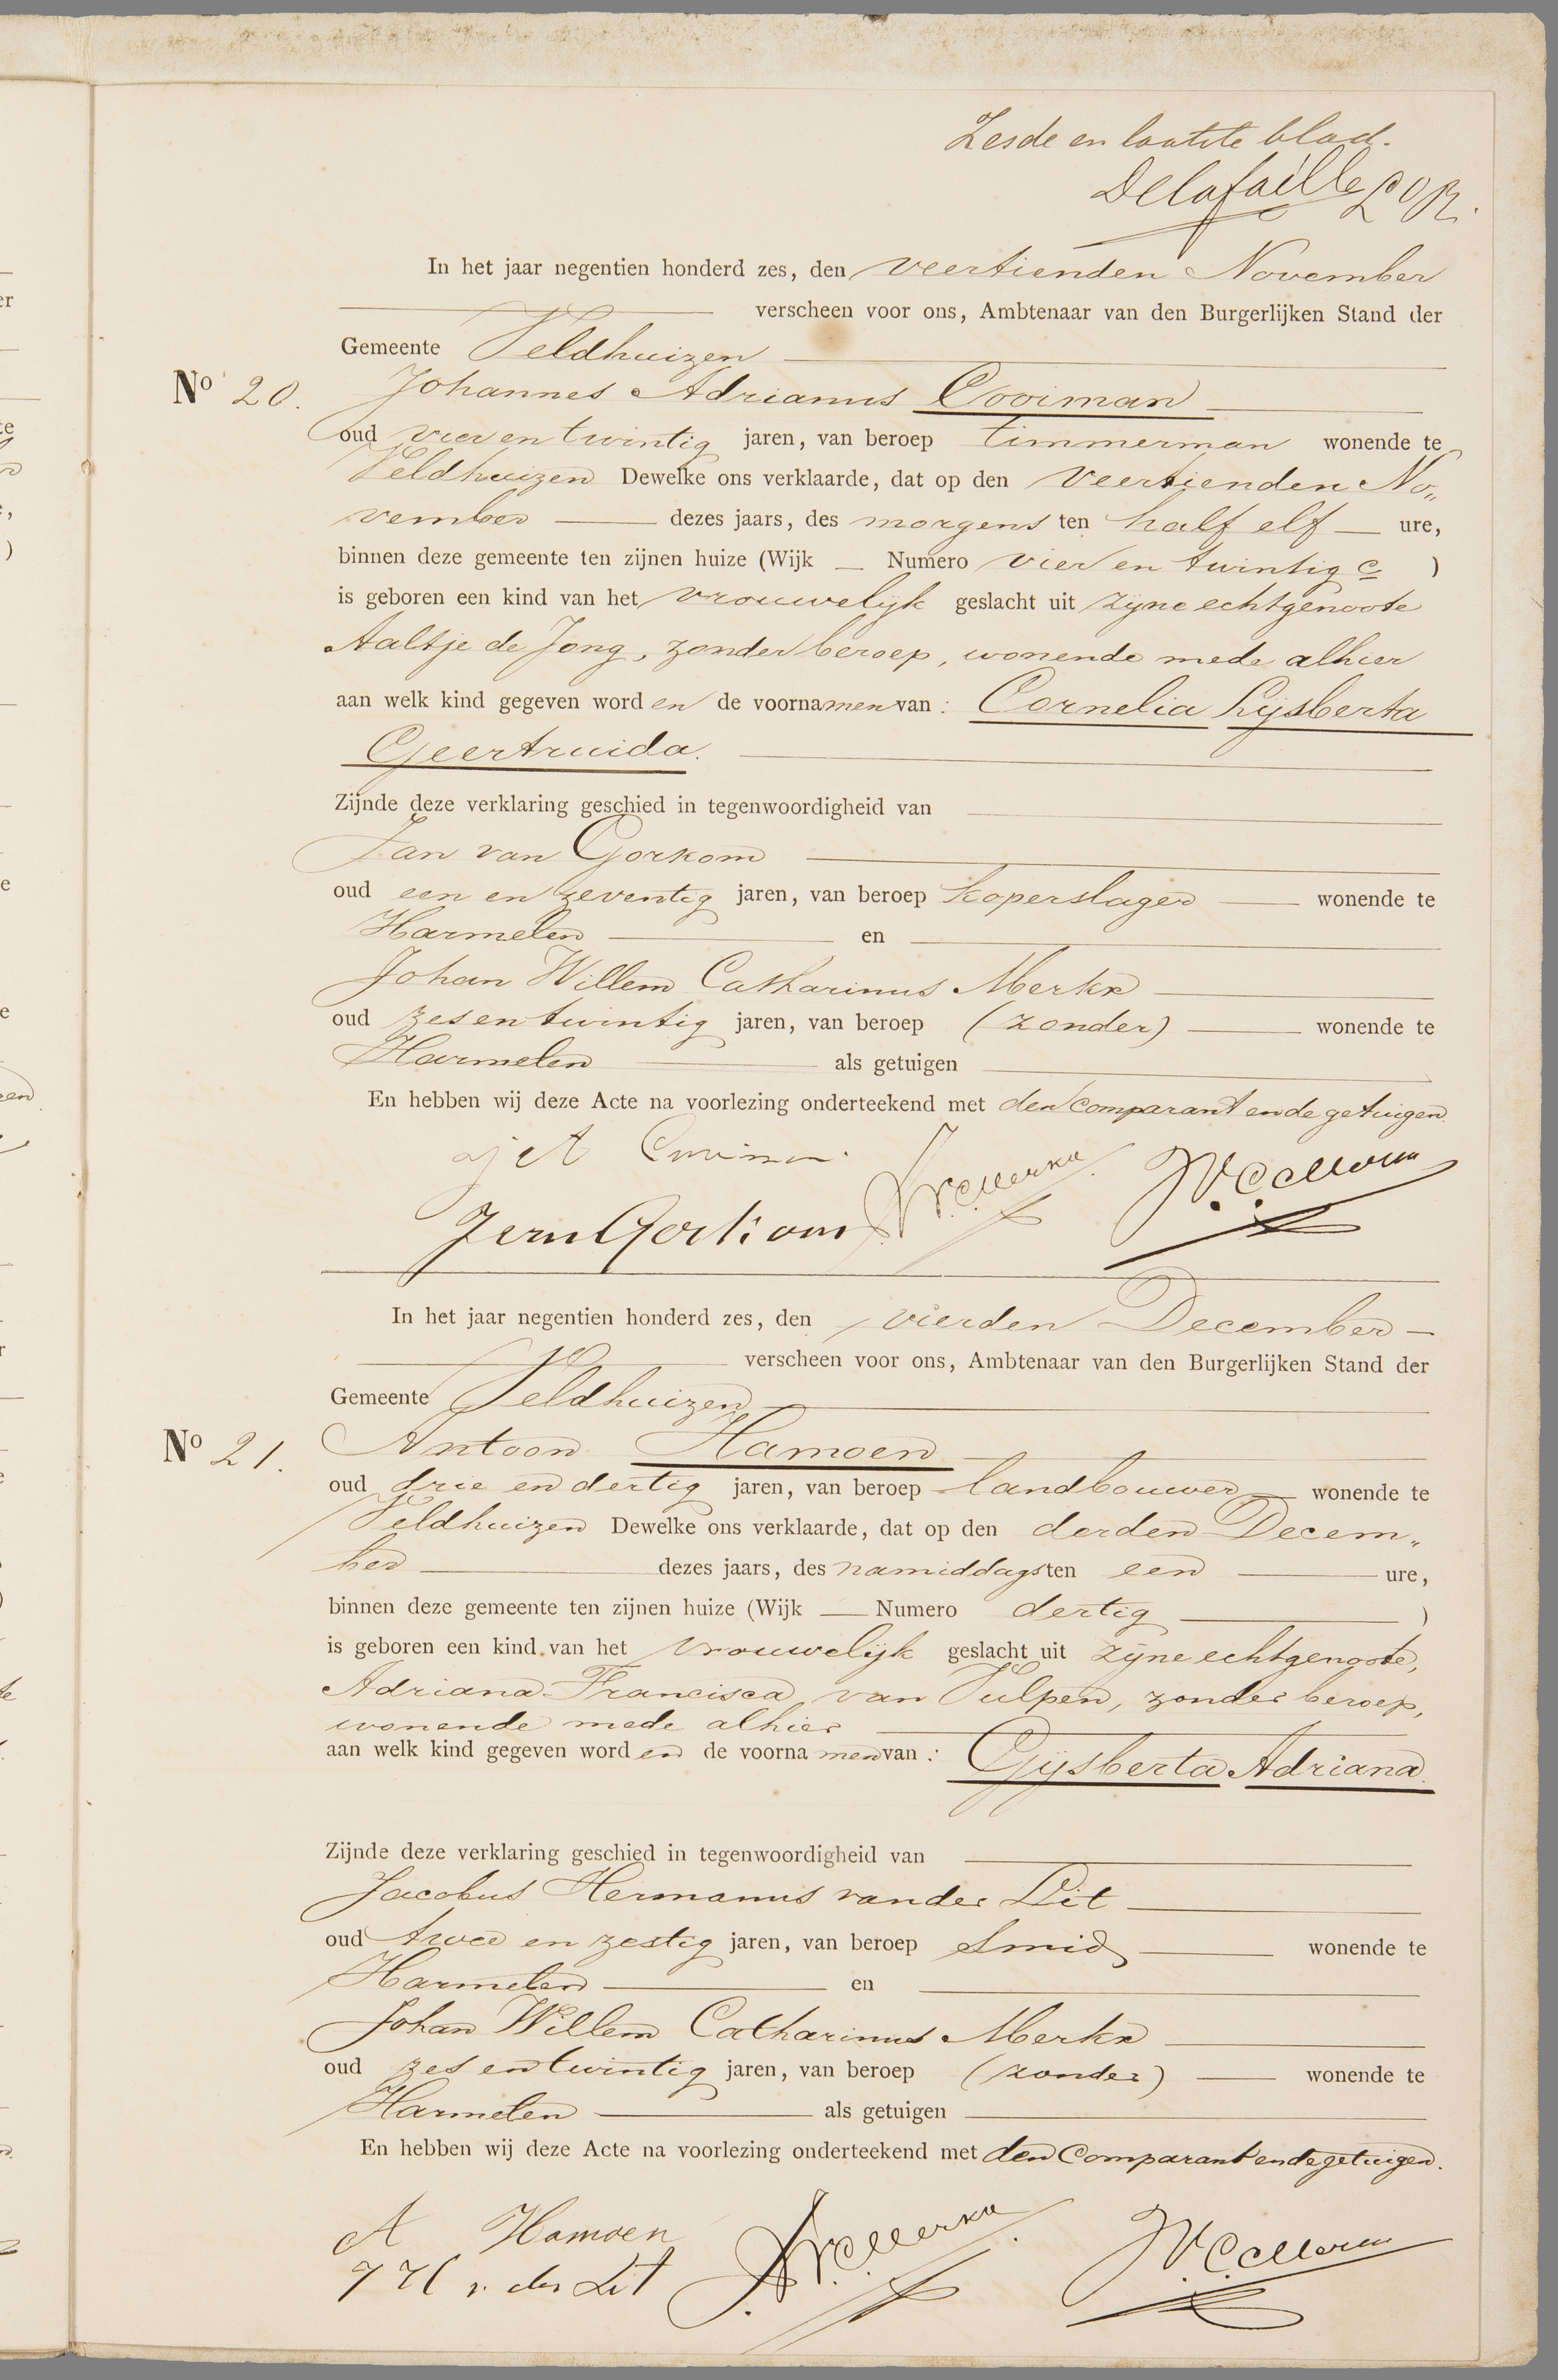 Zesde en laatste blad.
Delafaille
In het jaar negentien honderd zes, den veertienden November
verscheen voor ons, Ambtenaar van den Burgerlijken Stand der
Gemeente Veldhuizen
No 20. Johannes Adrianus Cooiman
oud vier en twintig jaren, van beroep timmerman wonende te
Veldhuizen Dewelke ons verklaarde, dat op den veertienden No„
vember dezes jaars, des morgens ten half elf ure,
binnen deze gemeente ten zijnen huize (Wijk — Numero vier en twintig c )
is geboren een kind van het vrouwelijk geslacht uit zijne echtgenoote
Aaltje de Jong, zonder beroep, wonende mede alhier
aan welk kind gegeven worden de voornamen van: Cornelia Gijsberta
Geertruida.
Zijnde deze verklaring geschied in tegenwoordigheid van
Jan van Gorkom
oud een en zeventig jaren, van beroep koperslager wonende te
Harmelen en
Johan Willem Catharinus Merkx
oud zes en twintig jaren, van beroep (zonder) wonende te
Harmelen als getuigen
En hebben wij deze Acte na voorlezing onderteekend met den comparant en de getuigen.
J A Cooiman
J van Gorkom
In het jaar negentien honderd zes, den vierden December
verscheen voor ons, Ambtenaar van den Burgerlijken Stand der
Gemeente Veldhuizen
No 21. Antoon Hamoen
oud drie en dertig jaren, van beroep landbouwer wonende te
Veldhuizen Dewelke ons verklaarde, dat op den derden Decem„
ber dezes jaars, des namiddags ten een ure,
binnen deze gemeente ten zijnen huize (Wijk — Numero dertig )
is geboren een kind van het vrouwelijk geslacht uit zijne echtgenoote,
Adriana Francisca van Vulpen, zonder beroep,
wonende mede alhier
aan welk kind gegeven worden de voornamen van: Gijsberta Adriana.
Zijnde deze verklaring geschied in tegenwoordigheid van
Jacobus Hermanus van der Lit
oud twee en zestig jaren, van beroep smid wonende te
Harmelen en
Johan Willem Catharinus Merkx
oud zes en twintig jaren, van beroep (zonder) wonende te
Harmelen als getuigen
En hebben wij deze Acte na voorlezing onderteekend met den Comparant en de getuigen.
A Hamoen
J H v. der Lit